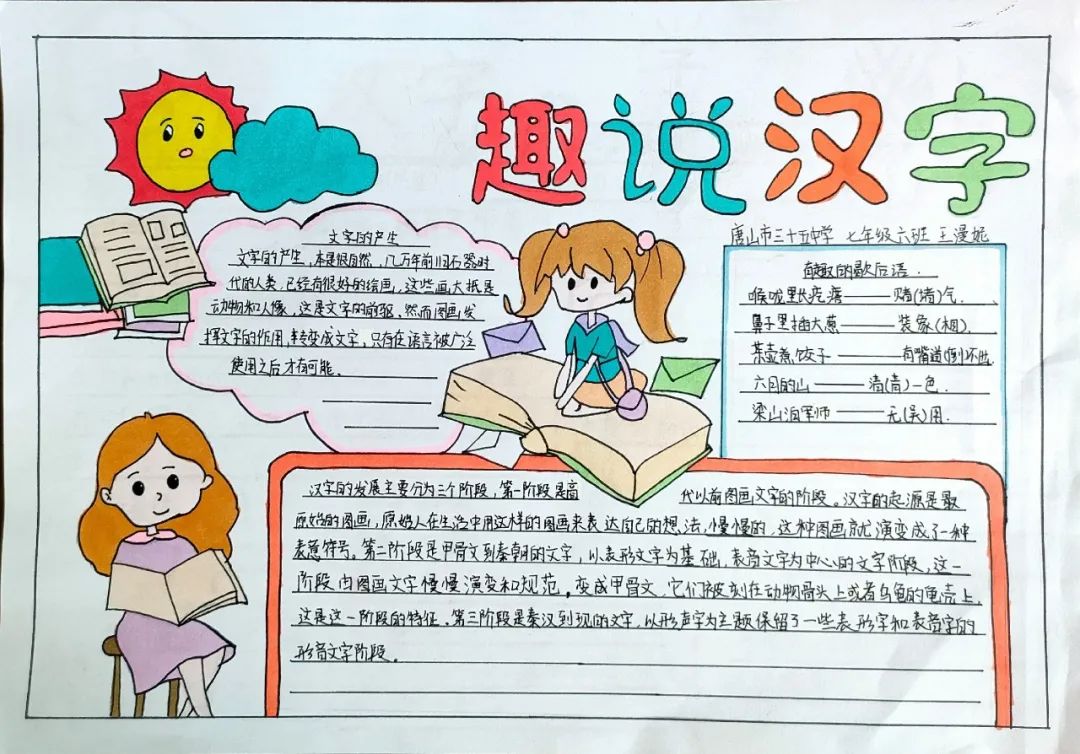 趣说汉字
唐山市三十五中学 七年级六班 王漫妮
文字的产生
文字的产生,本是很自然,几万年前旧石器时
代的人类,已经有很好的绘画,这些画大抵是
动物和人像,这是文字的前驱,然而图画发
挥文字的作用,转变成文字,只有在语言被广泛
使用之后才有可能。
有趣的歇后语.
喉咙里长疙瘩——赌(堵)气.
鼻子里插大葱——装象(相).
茶壶煮饺子——有嘴道(倒)不出
六月的山——清(青)一色.
梁山泊军师——无(吴)用.
汉字的发展主要分为三个阶段,第一阶段是商 代以前图画文字的阶段。汉字的起源是最
原始的图画,原始人在生活中用这样的图画来表达自己的想法,慢慢的,这种图画就演变成了一种
表意符号。第二阶段是甲骨文到秦朝的文字,以表形文字为基础,表音文字为中心的文字阶段,这一
阶段由图画文字慢慢演变和规范。变成甲骨文,它们被刻在动物骨头上或者乌龟的龟壳上,
这是这一阶段的特征。第三阶段是秦汉到现的文字,以形声字为主题保留了一些表形字和表音字的
形音文字阶段。